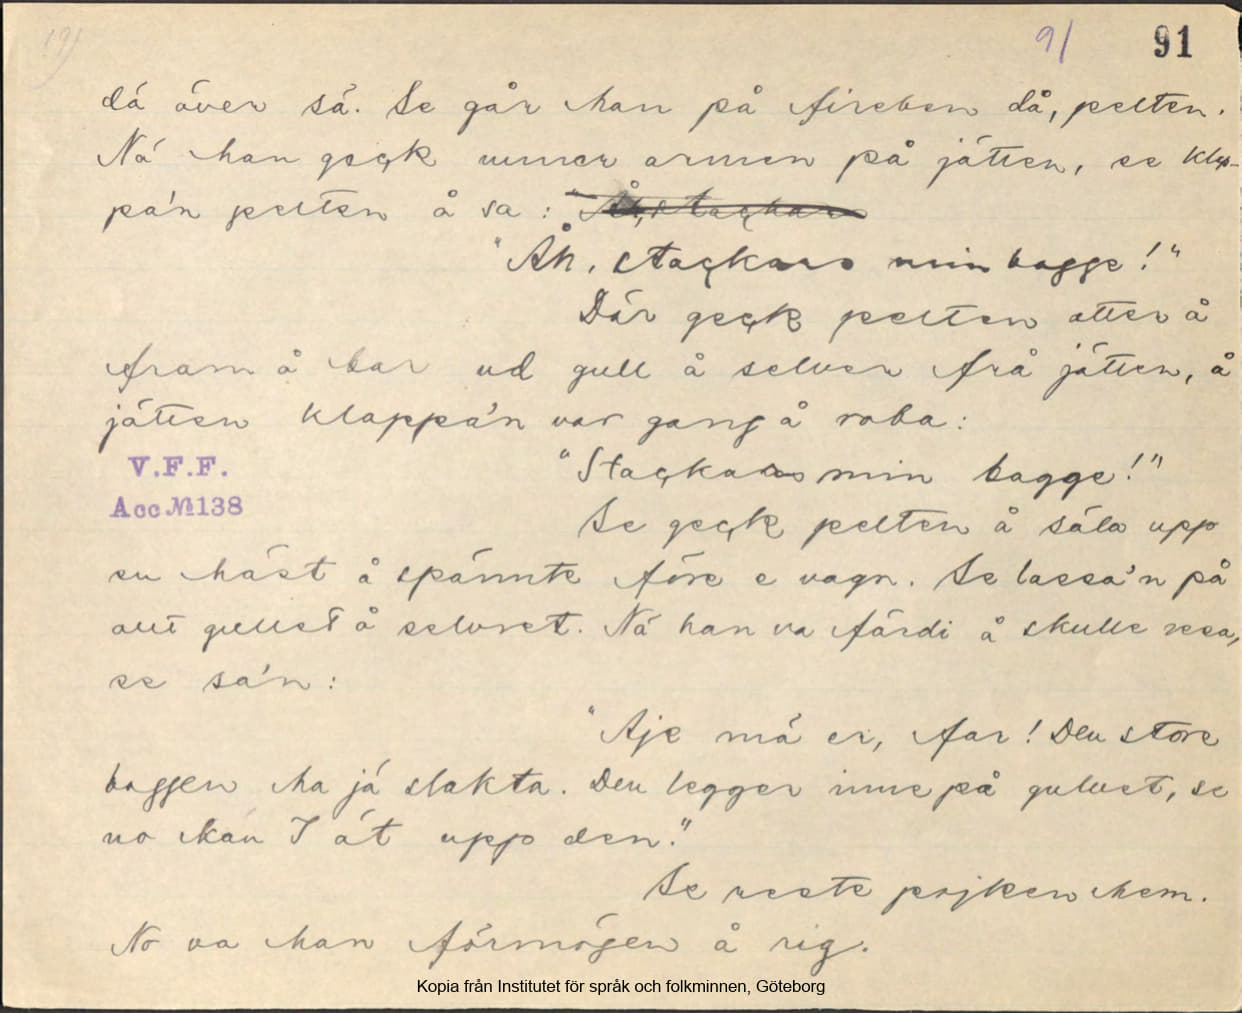 91 91
dá över sá. Se går han på fireben då, pelten.
Ná han geçk unner armen på játten, se klap-
pa'n pelten å sa: "Åh, staçkars
"Åh, staçkars min bagge!"
Där geçk pelten atter å
fram å bar ud gull å selver frå játten, å
játten klappa'n var gang å roba:
"Staçkars min bagge!"
V.F.F.
Acc № 138
Se geçk pelten å sála upp
en hást å spánnte fóre e vagn. Se lassa'n på
allt gullet å selvret. Ná han va fárdi å skulle resa,
se sa'n:
"Aje má er, far! Den store
baggen ha já slakta. Den legger inne på gulvet, se
no kan I át upp den."
Se reste pojken hem.
No va han fórmógen å rig.
Kopia från Institutet för språk och folkminnen, Göteborg